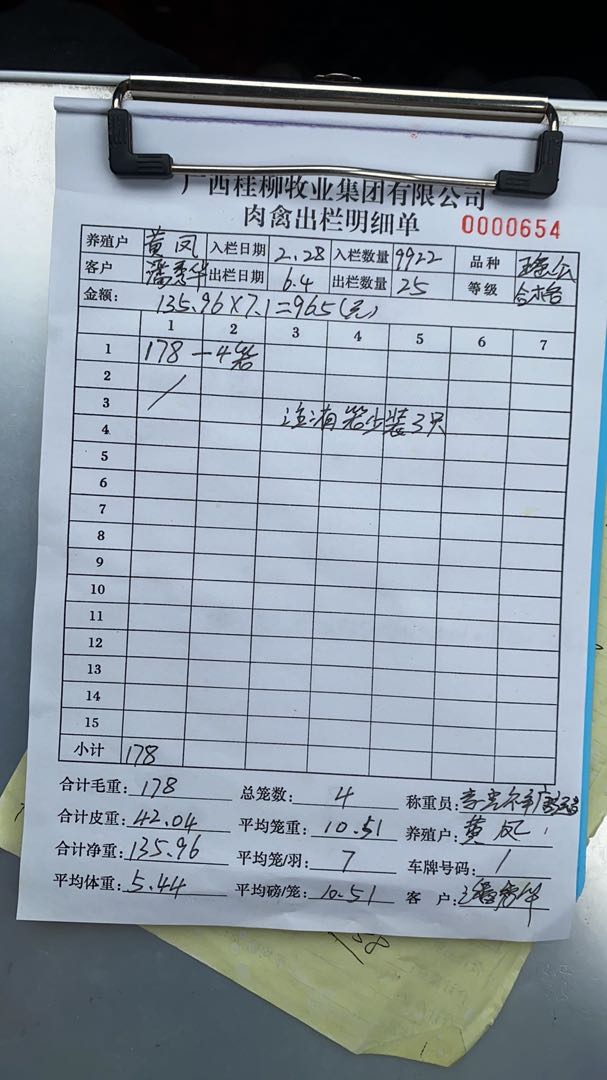 广西桂柳牧业集团有限公司
肉禽出栏明细单 0000654
养殖户 黄凤 入栏日期 2.28 入栏数量 9922 品种
客户 潘秀华 出栏日期 6.4 出栏数量 25 等级 合格
金额: 135.96×7.1=965(元)
1 2 3 4 5 6 7
1 178 - 4笼
2
3
4 注:有笼少装3只
5
6
7
8
9
10
11
12
13
14
15
小计 178
合计毛重: 178 总笼数: 4 称重员:
合计皮重: 42.04 平均笼重: 10.51 养殖户: 黄凤
合计净重: 135.96 平均笼/羽: 7 车牌号码: /
平均体重: 5.44 平均磅/笼: 10.51 客户: 潘秀华